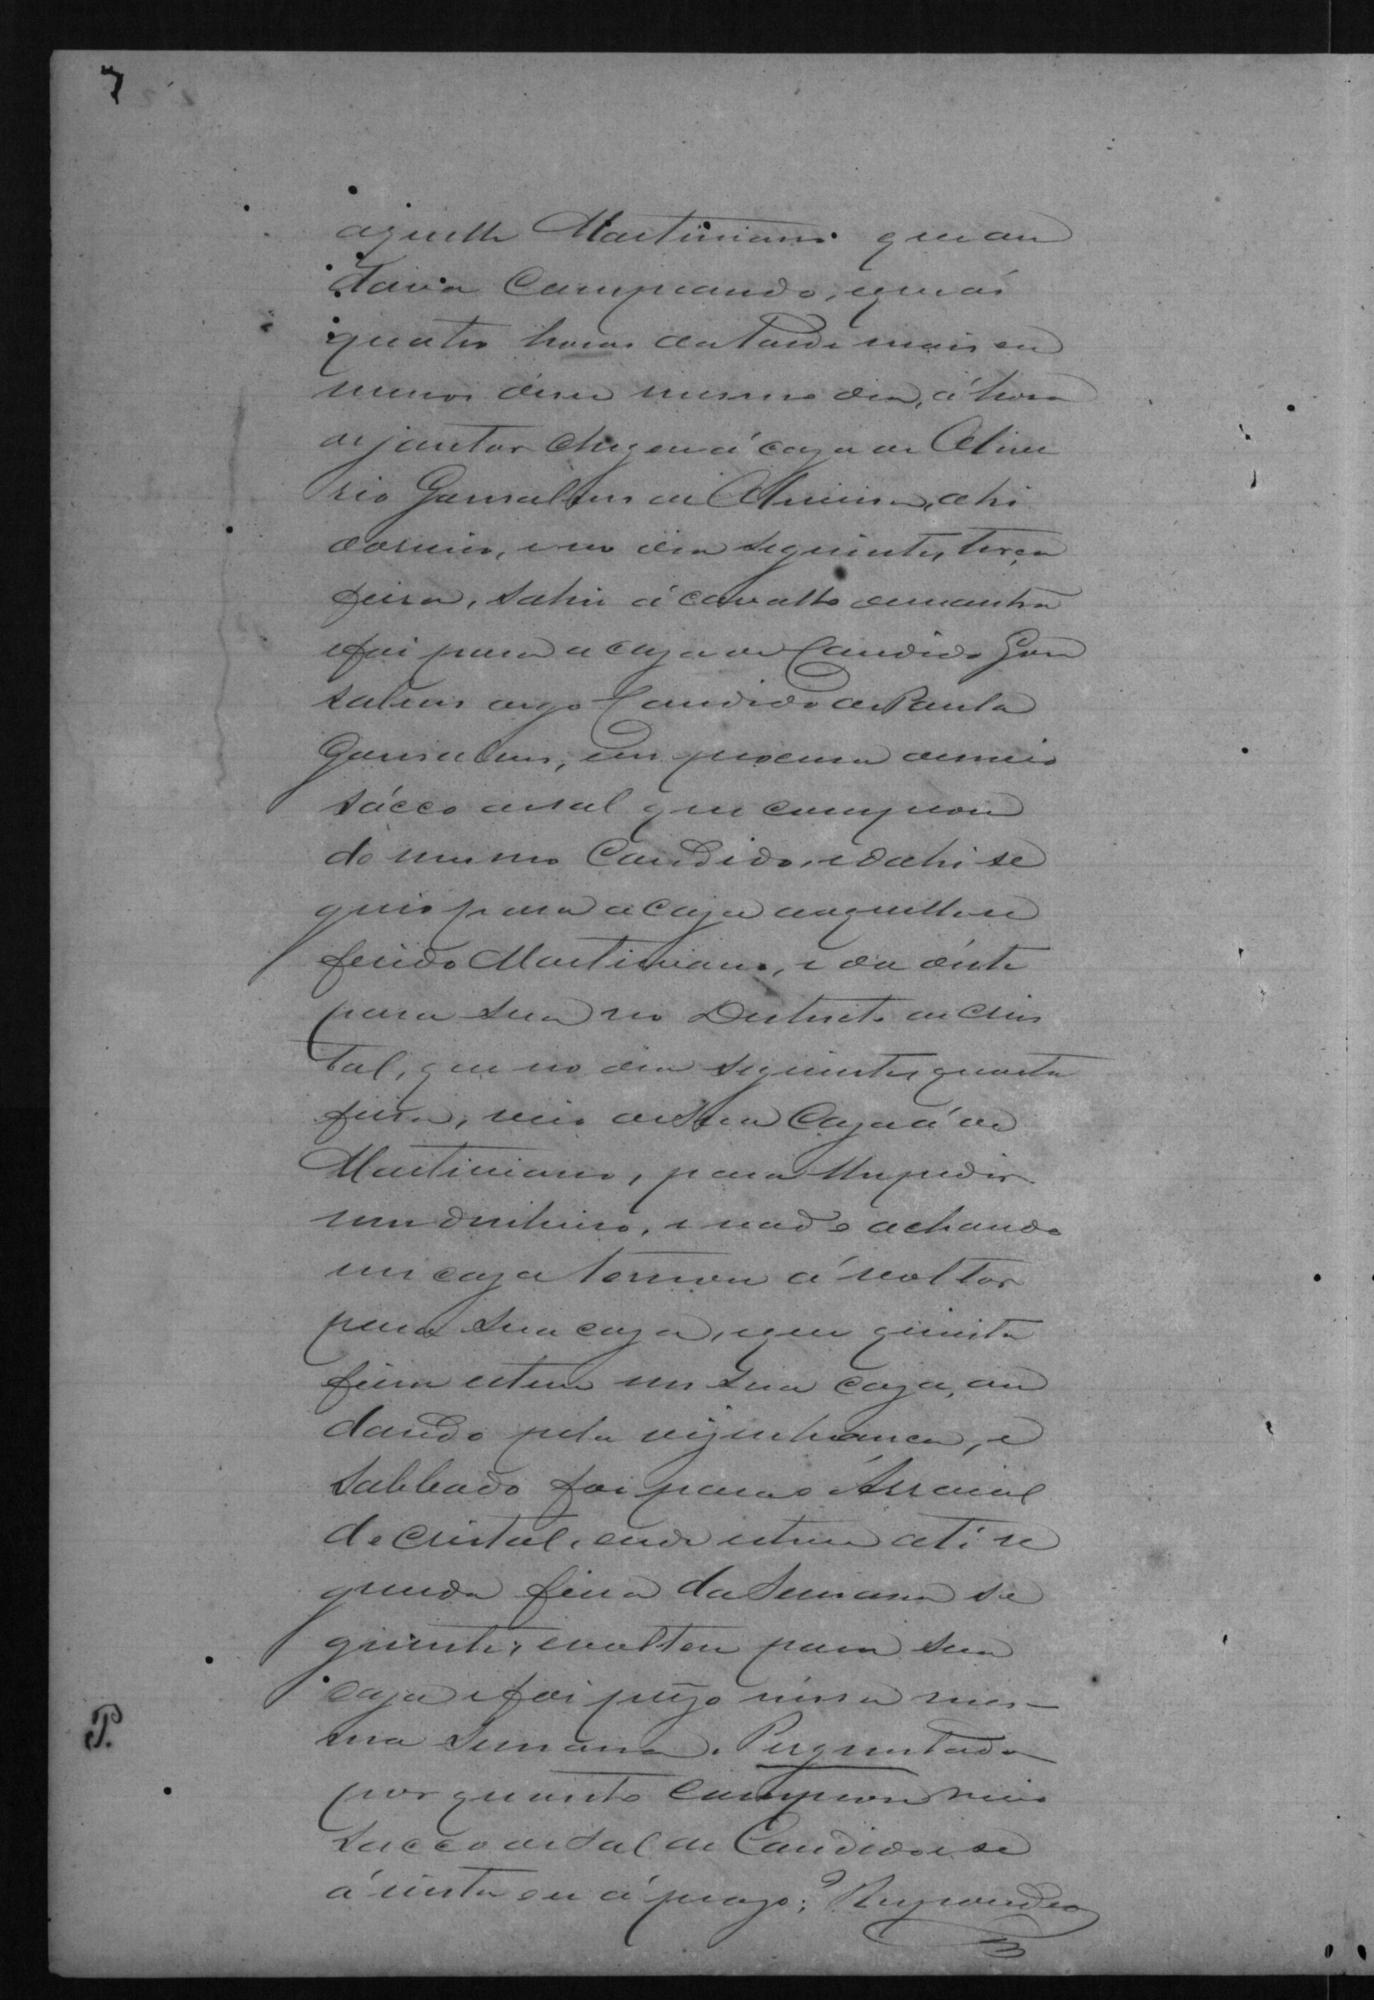 7
aquelle Martiniano que an
dava campeando, que ás
quatro horas da tarde mais ou
menos desse mesmo dia, á hora
de jantar chegou á caza de Olive
rio Gonsalves de Oliveira, ahi
dormio, e no dia seguinte, terça
feira, sahio á cavallo de manhã
e foi para a caza de Candido Gon
salves digo Candido de Paula
Gonsalves, em procura de meio
sácco de sal que comprou
do mesmo Candido, e dahi se
guio para a caza daquelle re
ferido Martiniano, e da deste
para sua no Districto de Cris
tal, que no dia seguinte, quarta
feira, veio de sua caza á de
Martiniano, para lhe pedir
um dinheiro, e nado achando
em caza tornou á voltar
para sua caza, e que quinta
feira esteve em sua caza, an
dando pela vizinhança, e
sabbado foi para o Arraial
do Cristal, onde esteve até se
gunda feira da semana se
guinte, e voltou para sua
caza e foi prezo nessa mes-
ma semana. Perguntado
P.
por quanto comprou meio
sacco de sal de Candido e se
á vista ou á prazo; ? Respondeo